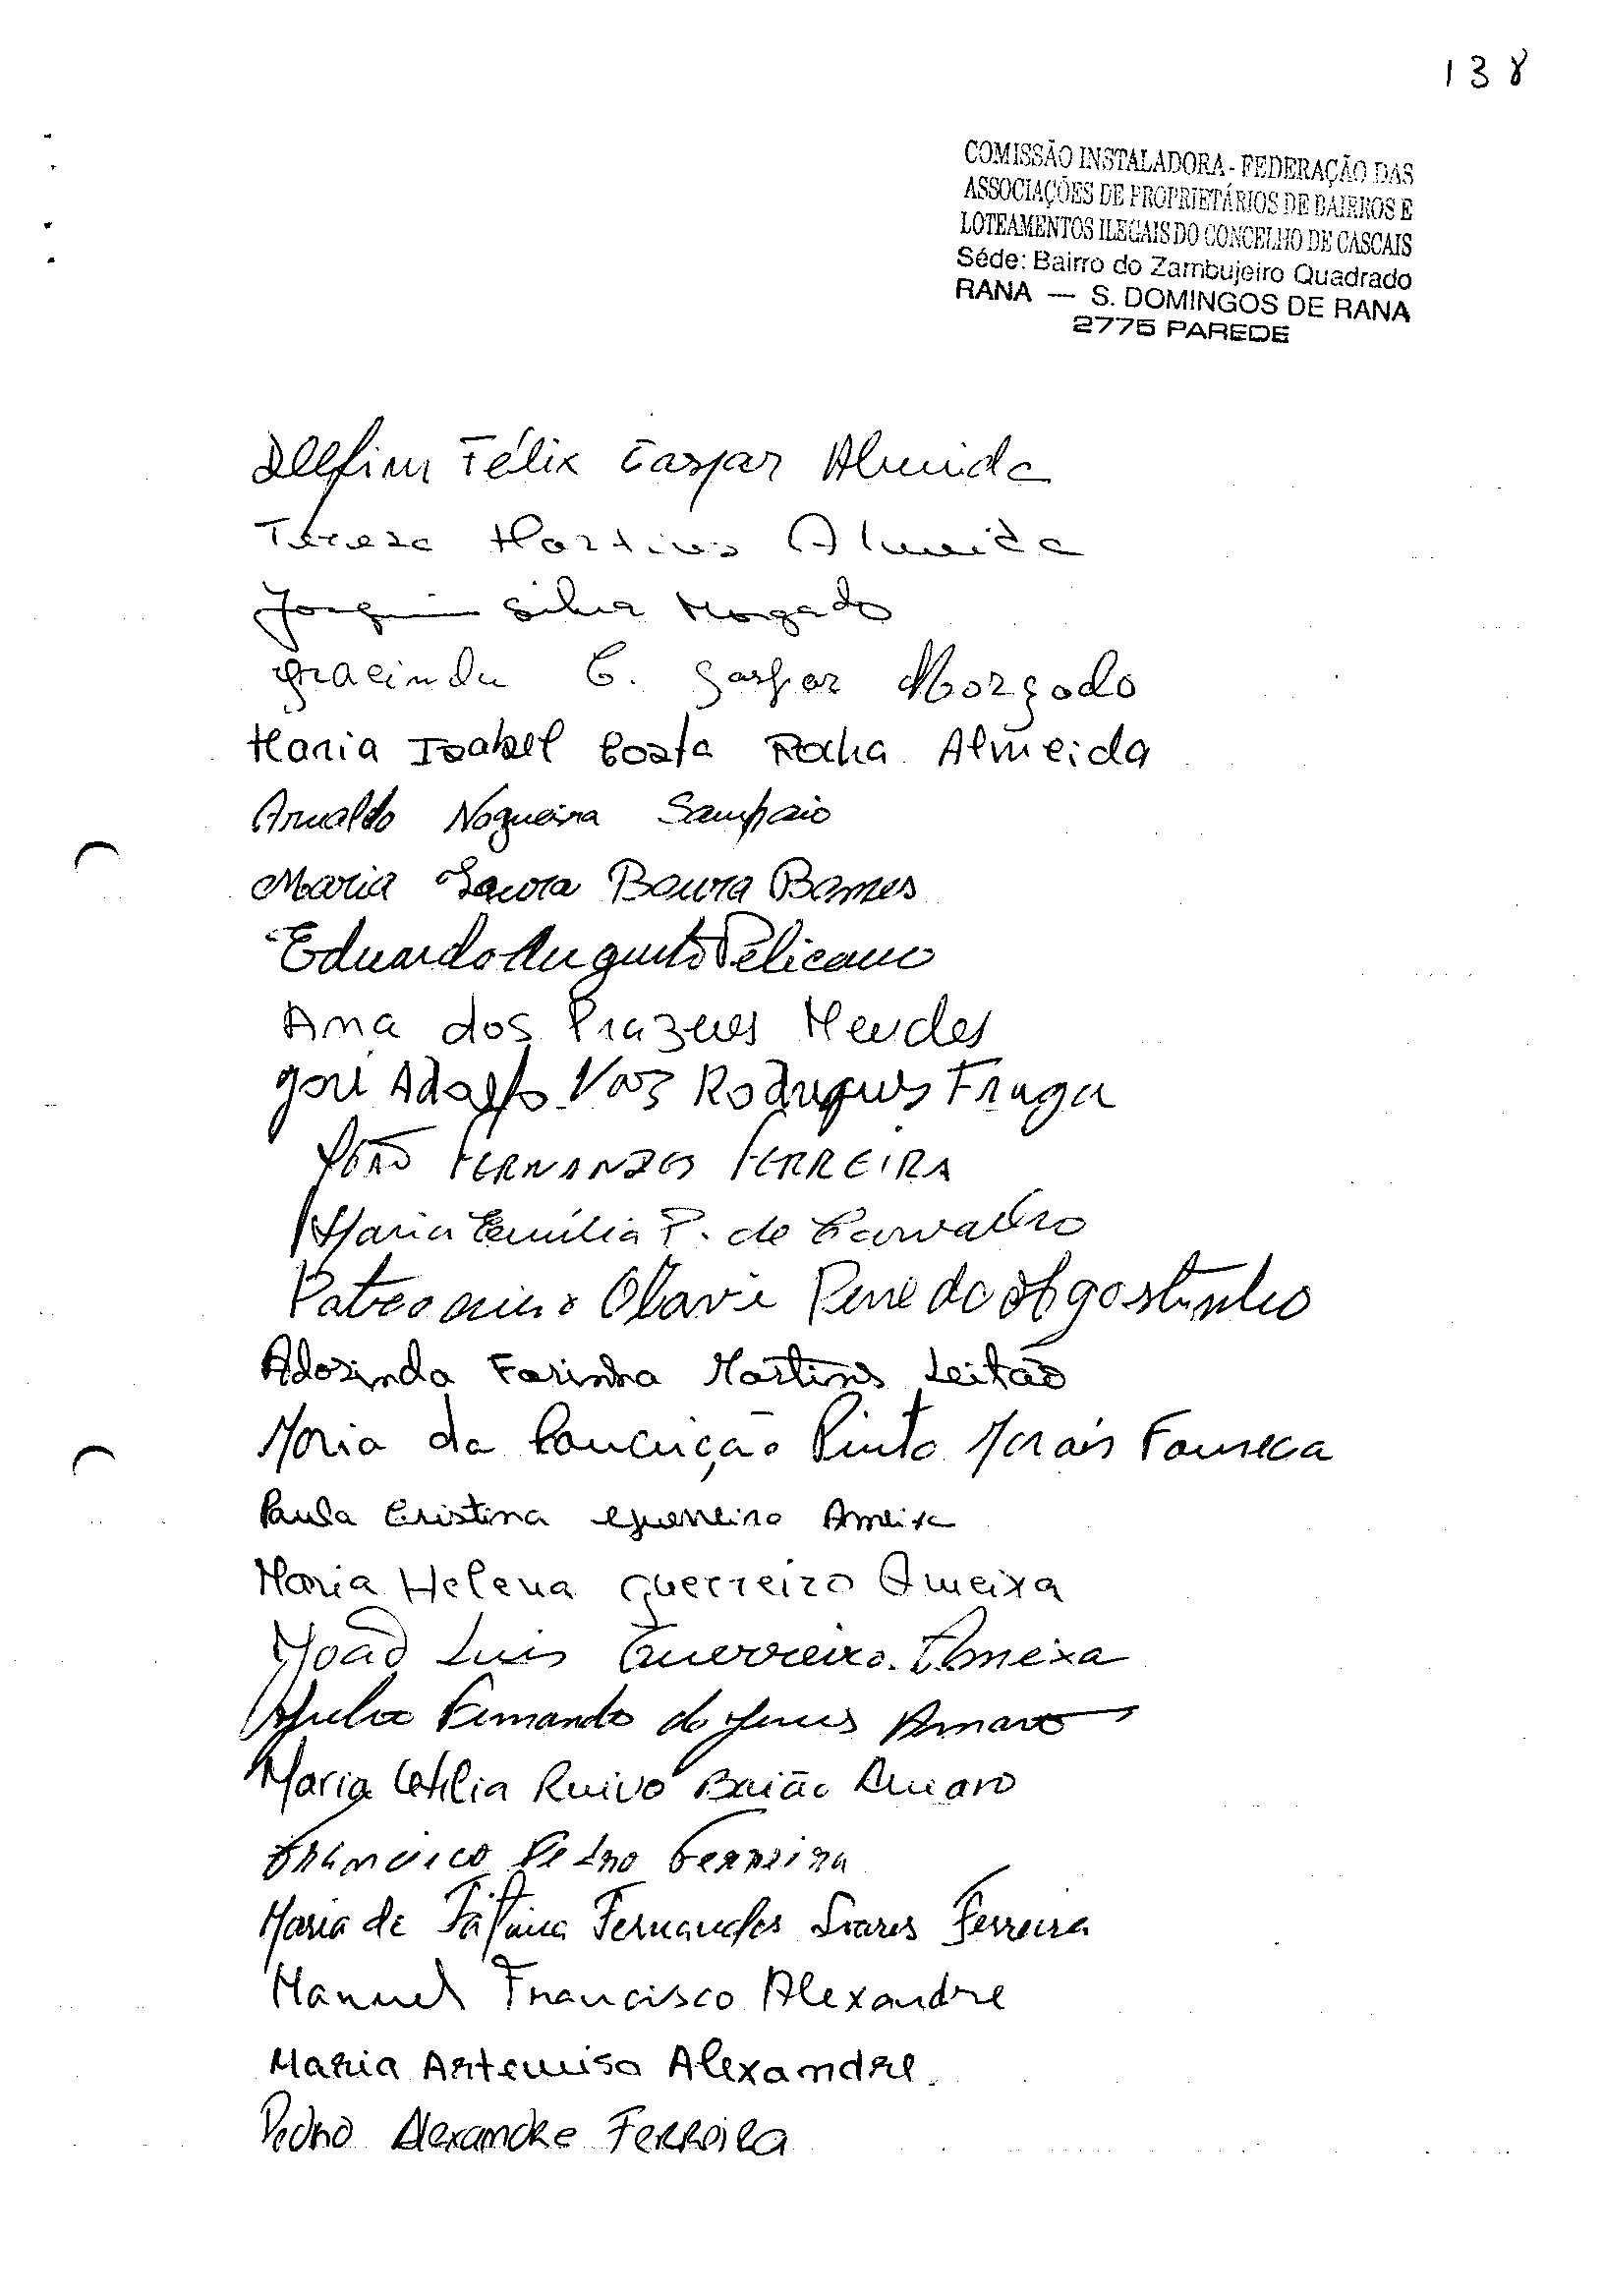 138
COMISSÃO INSTALADORA - FEDERAÇÃO DAS
ASSOCIAÇÕES DE PROPRIETÁRIOS DE BAIRROS E
LOTEAMENTOS ILEGAIS DO CONCELHO DE CASCAIS
Séde: Bairro do Zambujeiro Quadrado
RANA — S. DOMINGOS DE RANA
2775 PAREDE
Delfim Félix Gaspar Almeida
Tereza Martins Almeida
Joaquim Silva Morgado
Gracinda C. Gaspar Morgado
Maria Isabel Costa Rocha Almeida
Arnaldo Nogueira Sampaio
Maria Laura Baura
Eduardo Augusto Pelicano
Ana dos Prazeres Mendes
José Adolfo Vaz Rodrigues Fraga
JOÃO FERNANDES FERREIRA
Maria Emília P. de Carvalho
Olavo Penedo Agostinho
Adozinda Farinha Martins Leitão
Maria da Conceição Pinto Morais Fonseca
Paula Cristina Guerreiro Ameixa
Maria Helena Guerreiro Ameixa
João Luis Guerreiro Ameixa
Julio Fernando de Jesus Amaro
Maria Cetilia Ruivo Baião Amaro
Francisco Pedro Ferreira
Maria de Fátima Fernandes Soares Ferreira
Manuel Francisco Alexandre
Maria Artemisa Alexandre
Pedro Alexandre Ferreira